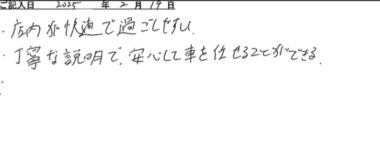 ご記入日 2025 年 2 月 19 日
・店内が快適で過ごしやすい。
・丁寧な説明で、安心して車を任せることができる。